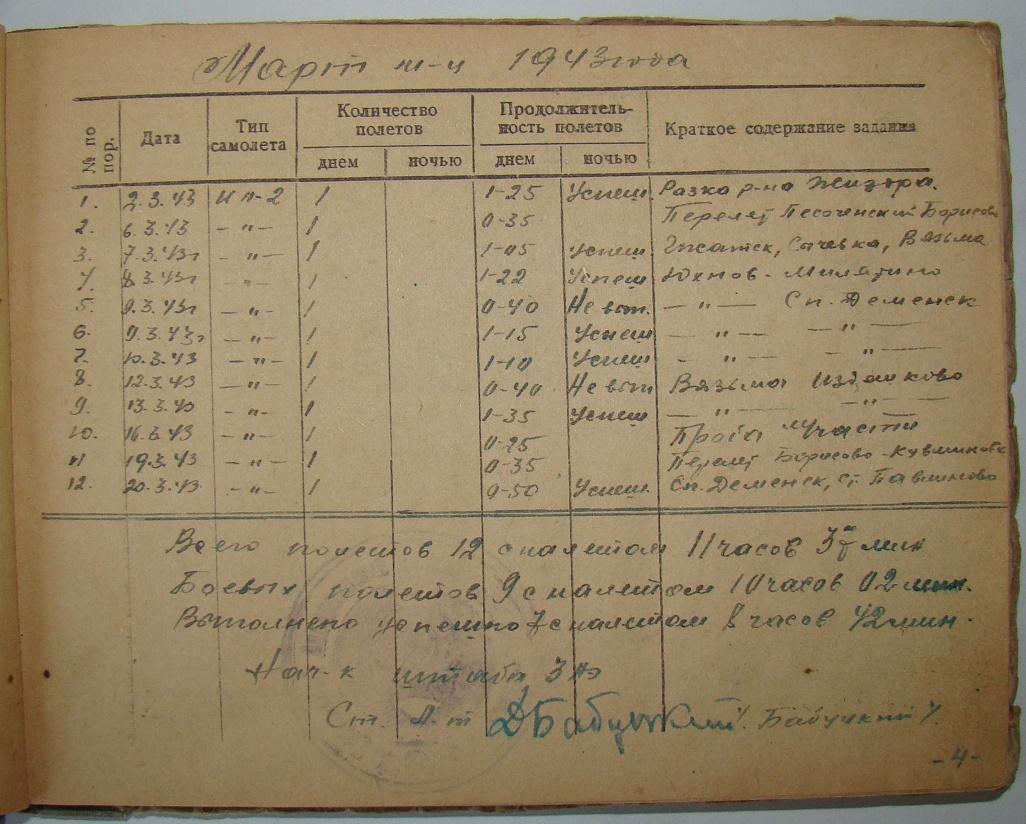 Март м-ц 1943 года
№ по пор. Дата Тип самолета Количество полетов Продолжитель-ность полетов Краткое содержание задания
днем ночью днем ночью
1. 2.3.43 Ил-2 1 1-25 Успеш. Разв р-на Жиздра.
2. 6.3.43 —"— 1 0-35 Перелет Песоченский Борисово
3. 7.3.43г —"— 1 1-05 успеш. Гжатск, Сычевка, Вязьма
4. 8.3.43г —"— 1 1-22 Успеш Юхнов - Милятино
5. 9.3.43г —"— 1 0-40 Не вып. —"— Сп. Деменск
6. 9.3.43г —"— 1 1-15 Успеш —"— —"—
7. 10.3.43 —"— 1 1-10 Успеш —"— —"—
8. 12.3.43 —"— 1 0-40 Не вып Вязьма Издешково
9. 13.3.43 —"— 1 1-35 Успеш. —"— —"—
10. 16.3.43 —"— 1 0-25 Проба
11 19.3.43 —"— 1 0-35 Перелет Борисово-
12. 20.3.43 —"— 1 0-50 Успеш. Сп. Деменск, ст. Павлиново
Всего полетов 12 с налетом 11 часов 37 мин
Боевых полетов 9 с налетом 10 часов 02 мин.
Выполнено успешно 7 с налетом 8 часов 42 мин.
Нач-к штаба 3 АЭ
Ст. л-т Бабуцкий /Бабуцкий/.
-4-